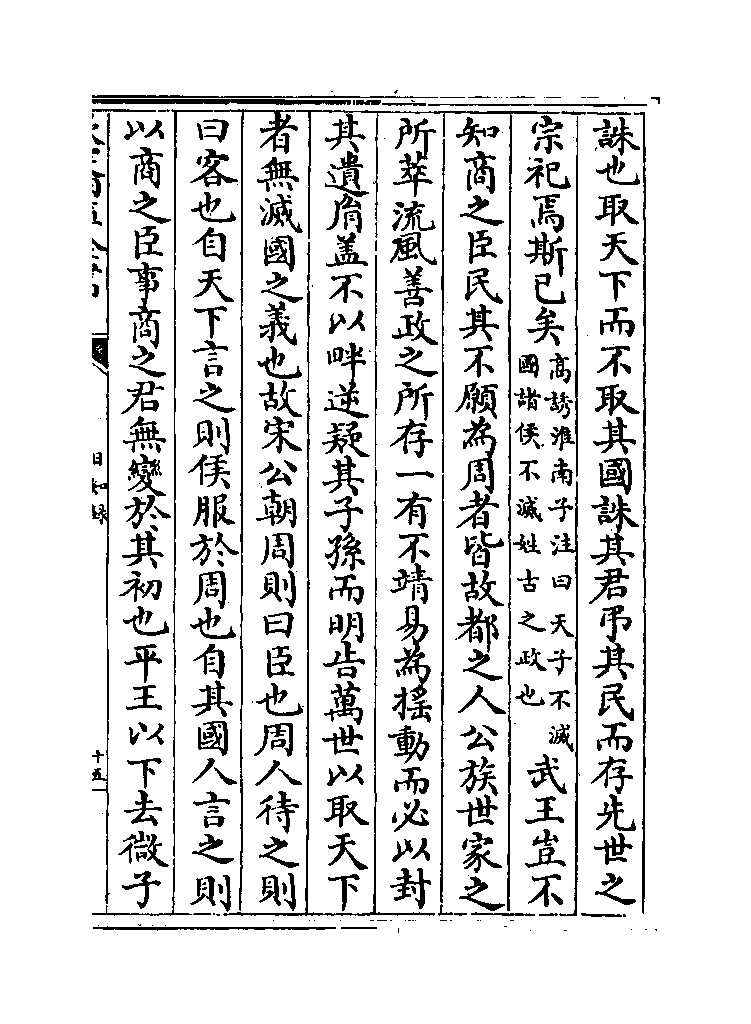 誅也取天下而不取其國誅其君弔其民而存先世之
宗祀焉斯已矣高誘淮南子注曰天子不滅國諸侯不滅姓古之政也武王豈不
知商之臣民其不願為周者皆故都之人公族世家之
所萃流風善政之所存一有不靖易為搖動而必以封
其遺𦙍盖不以畔逆疑其子孫而明告萬世以取天下
者無滅國之義也故宋公朝周則曰臣也周人待之則
曰客也自天下言之則侯服於周也自其國人言之則
以商之臣事商之君無變於其初也平王以下去微子
日知録
十五